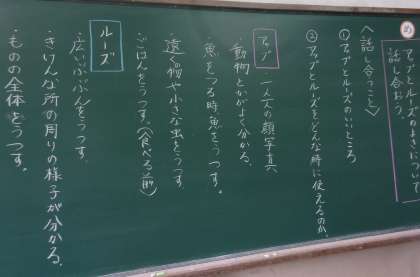 め
アップとルーズのよさについて
話し合おう。
〈話し合うこと〉
①アップとルーズのいいところ
②アップとルーズをどんな時に使えるのか。
アップ
・一人一人の顔写真
・動物とかがよく分かる。
・魚をつる時、魚をうつす。
・遠い物や小さな虫をうつす。
・ごはんをうつす。(食べる前)
ルーズ
・広いぶぶんをうつす。
・きけんな所の周りの様子が分かる。
・ものの全体をうつす。